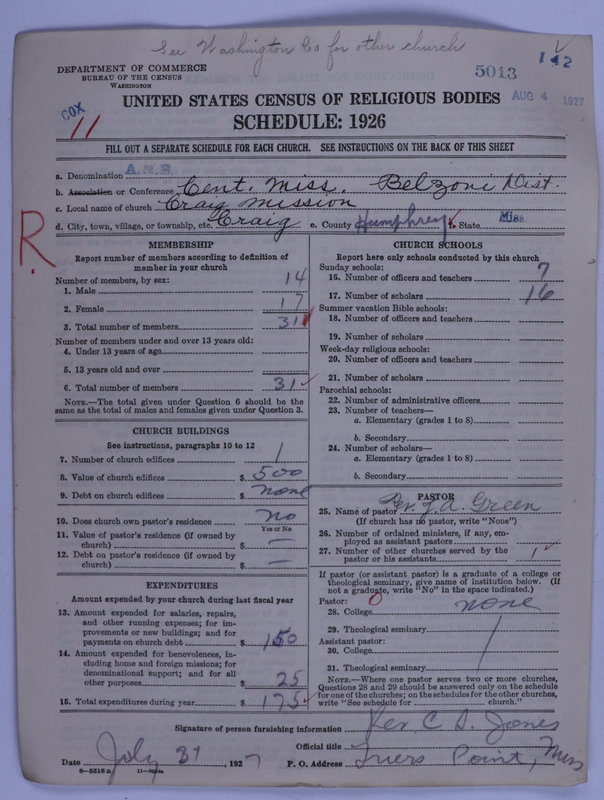 See Washington Co for other church
DEPARTMENT OF COMMERCE
BUREAU OF THE CENSUS
WASHINGTON
5013
142
AUG 4 1927
COX
11
UNITED STATES CENSUS OF RELIGIOUS BODIES
SCHEDULE: 1926
FILL OUT A SEPARATE SCHEDULE FOR EACH CHURCH. SEE INSTRUCTIONS ON THE BACK OF THIS SHEET
a. Denomination A.M.E.
b. Association or Conference Cent. Miss. Belzoni Dist.
c. Local name of church Craig Mission
d. City, town, village, or township, etc. Craig e. County Humphreys State Miss.
R
MEMBERSHIP
Report number of members according to definition of
member in your church
Number of members, by sex:
1. Male 14
2. Female 17
3. Total number of members 31
Number of members under and over 13 years old:
4. Under 13 years of age
5. 13 years old and over
6. Total number of members 31
NOTE.—The total given under Question 6 should be
same as the total of males and females given under Question 3.
CHURCH BUILDINGS
See instructions, paragraphs 10 to 12
7. Number of church edifices 1
8. Value of church edifices $ 500
9. Debt on church edifices $ none
10. Does church own pastor's residence no
Yes or No
11. Value of pastor's residence (if owned by
church) $ —
12. Debt on pastor's residence (if owned by
church) $ —
EXPENDITURES
Amount expended by your church during last fiscal year
13. Amount expended for salaries, repairs,
and other running expenses; for im-
provements or new buildings; and for
payments on church debt $ 150
14. Amount expended for benevolences, in-
cluding home and foreign missions; for
denominational support; and for all
other purposes $ 25
15. Total expenditures during year $ 175
CHURCH SCHOOLS
Report here only schools conducted by this church
Sunday schools:
16. Number of officers and teachers 7
17. Number of scholars 16
Summer vacation Bible schools:
18. Number of officers and teachers
19. Number of scholars
Week-day religious schools:
20. Number of officers and teachers
21. Number of scholars
Parochial schools:
22. Number of administrative officers
23. Number of teachers—
a. Elementary (grades 1 to 8)
b. Secondary
24. Number of scholars—
a. Elementary (grades 1 to 8)
b. Secondary
PASTOR
25. Name of pastor Rev. J. A. Green
(If church has no pastor, write "None")
26. Number of ordained ministers, if any, em-
ployed as assistant pastors
27. Number of other churches served by the
pastor or his assistants 1
If pastor (or assistant pastor) is a graduate of a college or
theological seminary, give name of institution below. (If
not a graduate, write "No" in the space indicated.)
Pastor: 0
28. College none
29. Theological seminary
Assistant pastor:
30. College
31. Theological seminary
NOTE.—Where one pastor serves two or more churches,
Questions 28 and 29 should be answered only on the schedule
for one of the churches; on the schedules for the other churches,
write "See schedule for church."
Signature of person furnishing information Rev. C. S. Jones
Official title
Date July 31 1927 P. O. Address Point, Miss
8—5518 a